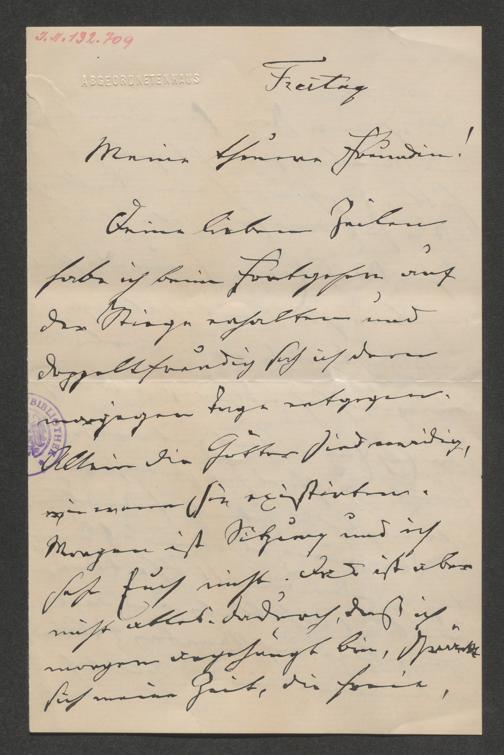 I.N.192.709
ABGEORDNETENHAUS
Freitag
Meine theuere Freundin!
Deine lieben Zeilen
habe ich beim Fortgehen auf
der Stiege erhalten und
doppelt freudig sah ich dem
morgigen Tage entgegen.
Allein die Götter sind neidig,
wie wenn sie existirten.
Morgen ist Sitzung und ich
seh Euch nicht. Das ist aber
nicht alles. dadurch, daß ich
morgen angehängt bin,
sich meine Zeit, die freie,
BIBLIOTHEK